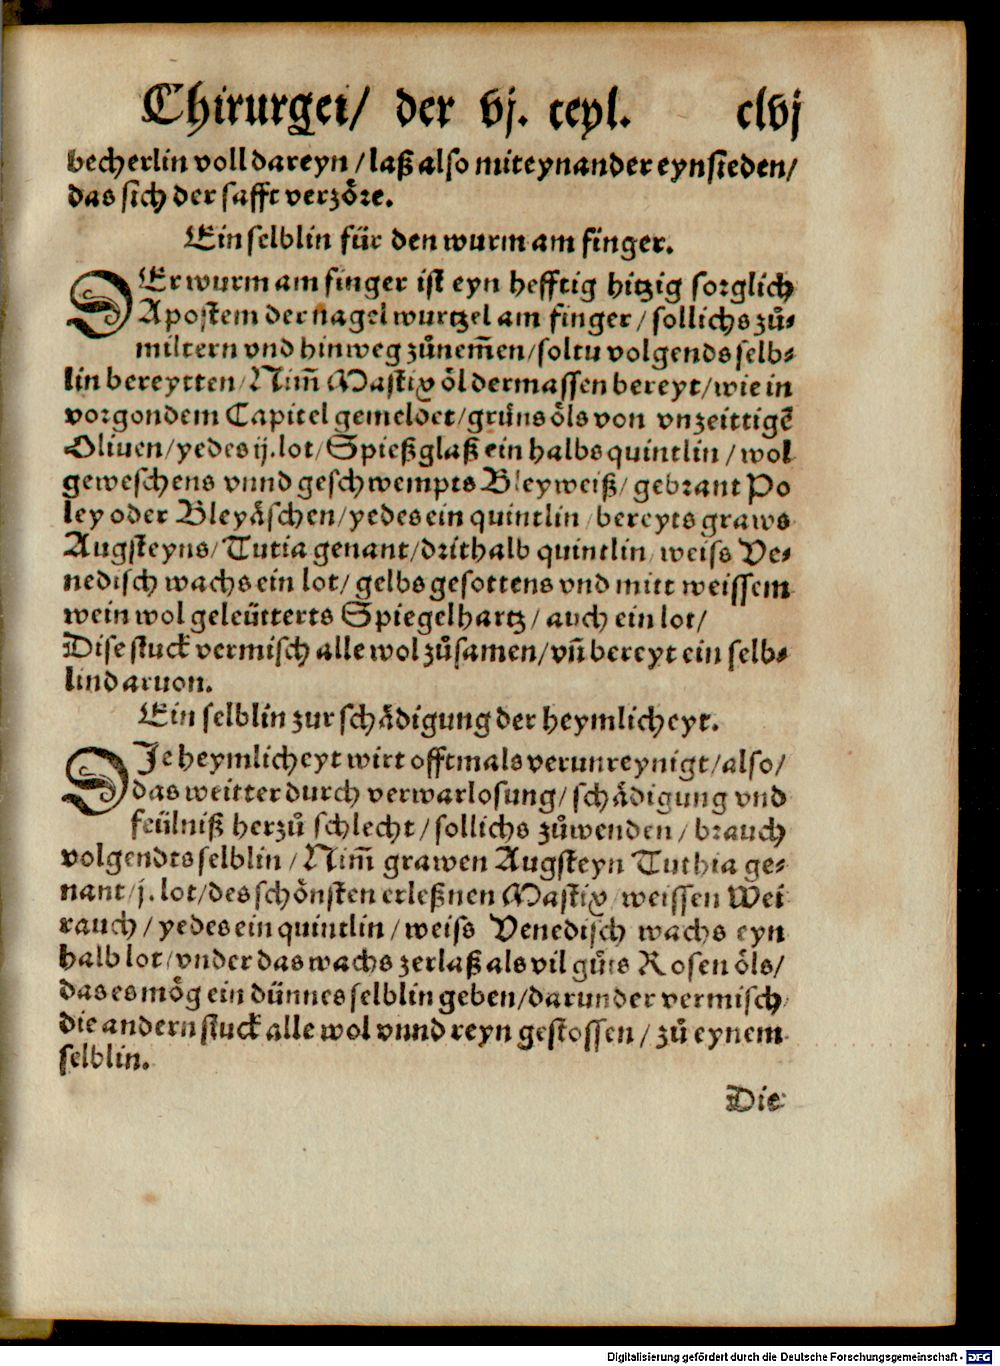 Chirurgei/ der vj. teyl. clvj
becherlin voll dareyn/ laß also miteynander eynsieden/
das sich der safft verzöre.
Ein selblin für den wurm am finger.
DEr wurm am finger ist eyn hefftig hitzig sorglich
Apostem der nagel wurtzel am finger/ sollichs zů⸗
miltern vnd hinweg zůnem̃en/ soltu volgends selb⸗
lin bereytten/ Nim̃ Mastix öl dermassen bereyt/ wie in
vorgondem Capitel gemeldet/ grůns öls von vnzeittigẽ
Oliuen/ yedes ij. lot/ Spießglaß ein halbs quintlin/ wol
geweschens vnnd geschwempts Bleyweiß/ gebrant Po
ley oder Bleyäschen/ yedes ein quintlin/ bereyts graws
Augsteyns/ Tutia genant/ drithalb quintlin/ weiss Ve⸗
nedisch wachs ein lot/ gelbs gesottens vnd mitt weissem
wein wol geleütterts Spiegelhartz/ auch ein lot/
Dise stuck vermisch alle wol zůsamen/ vñ bereyt ein selb⸗
lin daruon.
Ein selblin zur schädigung der heymlicheyt.
DIe heymlicheyt wirt offtmals verunreynigt/ also/
das weitter durch verwarlosung/ schädigung vnd
feülniß herzů schlecht/ sollichs zůwenden/ brauch
volgendts selblin/ Nim̃ grawen Augsteyn Tuthia ge⸗
nant/ j. lot/ des schönsten erleßnen Mastix/ weissen Wei
rauch/ yedes ein quintlin/ weiss Venedisch wachs eyn
halb lot/ vnder das wachs zerlaß als vil gůts Rosen öls/
das es mög ein dünnes selblin geben/ darunder vermisch
die andern stuck alle wol vnnd reyn gestossen/ zů eynem
selblin.
Die
Digitalisierung gefördert durch die Deutsche Forschungsgemeinschaft - DFG